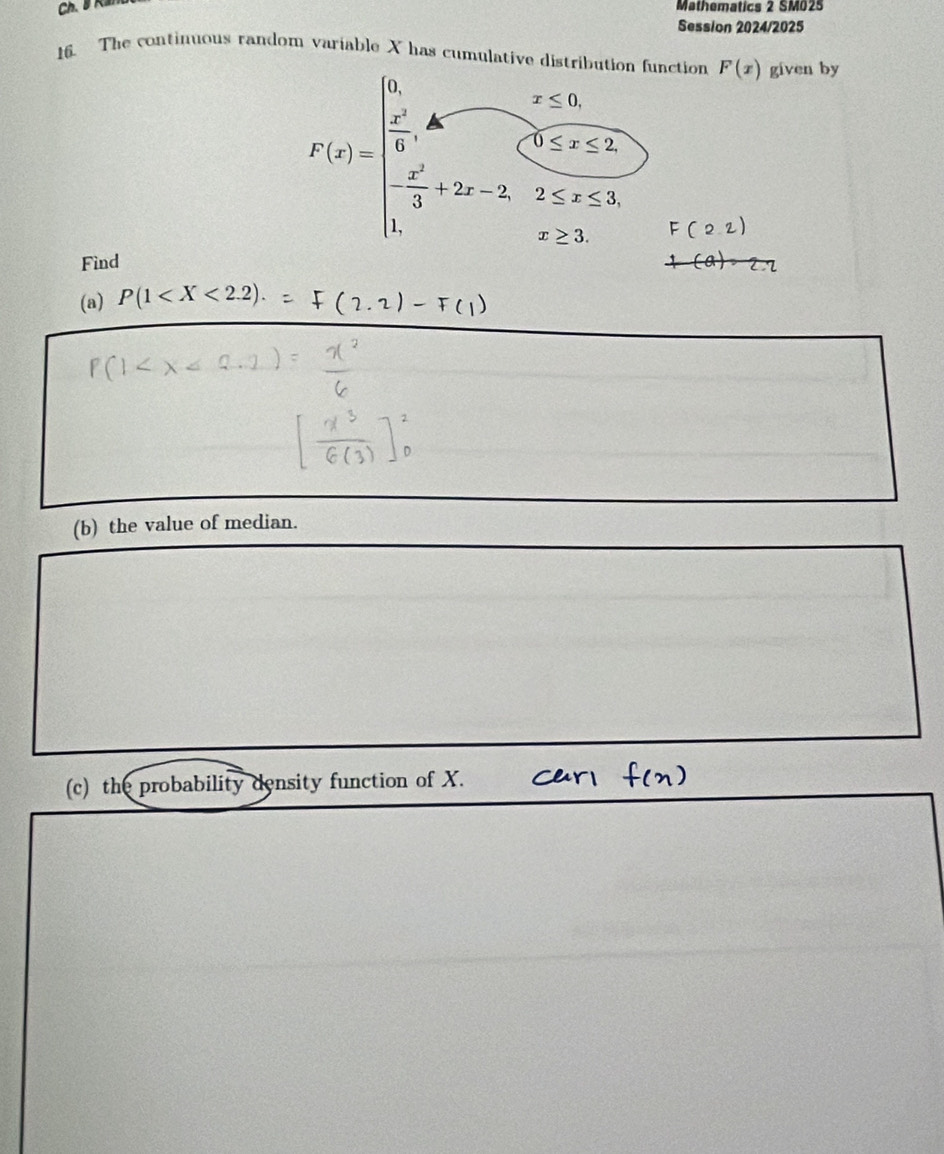 Ch.
Mathematics 2 SM025
Session 2024/2025
16. The continuous random variable X has cumulative distribution function F(x) given by
0, x ≤ 0,
x²/6, 0 ≤ x ≤ 2,
F(x) =
-x²/3 + 2x - 2, 2 ≤ x ≤ 3,
1, x ≥ 3.
F(2.2)
Find
(a) P(1 < X < 2.2). = F(2.2) - F(1)
P(1 < x < 2.2) = x²/6
[x³/6(3)]²₀
(b) the value of median.
(c) the probability density function of X. cari f(x)